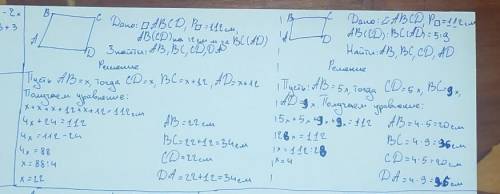 - 2x
+ 3
B C
A D
Дано: ▱ABCD, P▱=112 см,
AB(CD) на 12 см м за BC(AD)
Знайти: AB, BC, CD, DA
Решение
Пусть AB=x, тогда CD=x, BC=x+12, AD=x+12
Получаем уравнение:
x+x+x+12+x+12=112см
4x+24=112
4x=112-24
4x=88
x=88:4
x=22
AB=22см
BC=22+12=34см
CD=22см
DA=22+12=34см
B C
A D
Дано: ▱ABCD, P▱=112см
AB(CD):BC(AD)=5:9
Найти: AB, BC, CD, AD
Решение
Пусть: AB=5x, тогда CD=5x, BC=9x,
AD=9x. Получаем уравнение:
5x+5x+9x+9x=112
28x=112
x=112:28
x=4
AB=4·5=20см
BC=4·9=36см
CD=4·5=20см
DA=4·9=36см